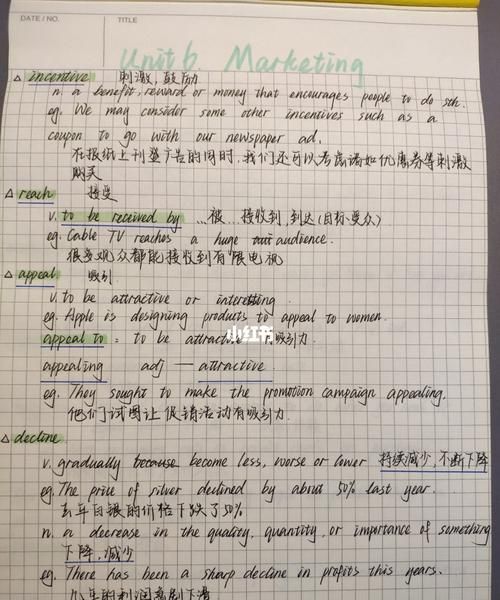 DATE / NO.
TITLE
Unit 6. Marketing
△ incentive 刺激, 鼓励
n. a benefit, reward or money that encourages people to do sth.
eg. We may consider some other incentives such as a
coupon to go with our newspaper ad.
在报纸上刊登广告的同时, 我们还可以考虑诸如优惠券等刺激
购买
△ reach 接受
v. to be received by ...被...接收到, 到达(目标受众)
eg. Cable TV reaches a huge audience.
很多观众都能接收到有线电视
△ appeal 吸引
v. to be attractive or interesting
eg. Apple is designing products to appeal to women.
小红书
appeal to : to be attractive 有吸引力
appealing adj — attractive
eg. They sought to make the promotion campaign appealing.
他们试图让促销活动有吸引力.
△ decline
v. gradually because become less, worse or lower 持续减少, 不断下降
eg. The price of silver declined by about 50% last year.
去年白银的价格下跌了50%
n. a decrease in the quality, quantity, or importance of something
下降, 减少
eg. There has been a sharp decline in profits this years.
年的利润急剧下滑